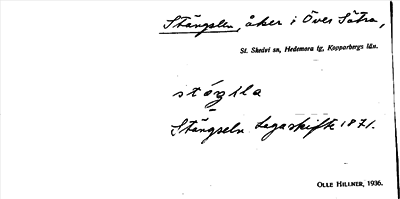 Stängslen, åker i Över Sätra,
St. Skedvi sn, Hedemora tg, Kopparbergs län.
stäŋsla
Stängseln Lagaskifte 1871.
OLLE HILLNER, 1936.